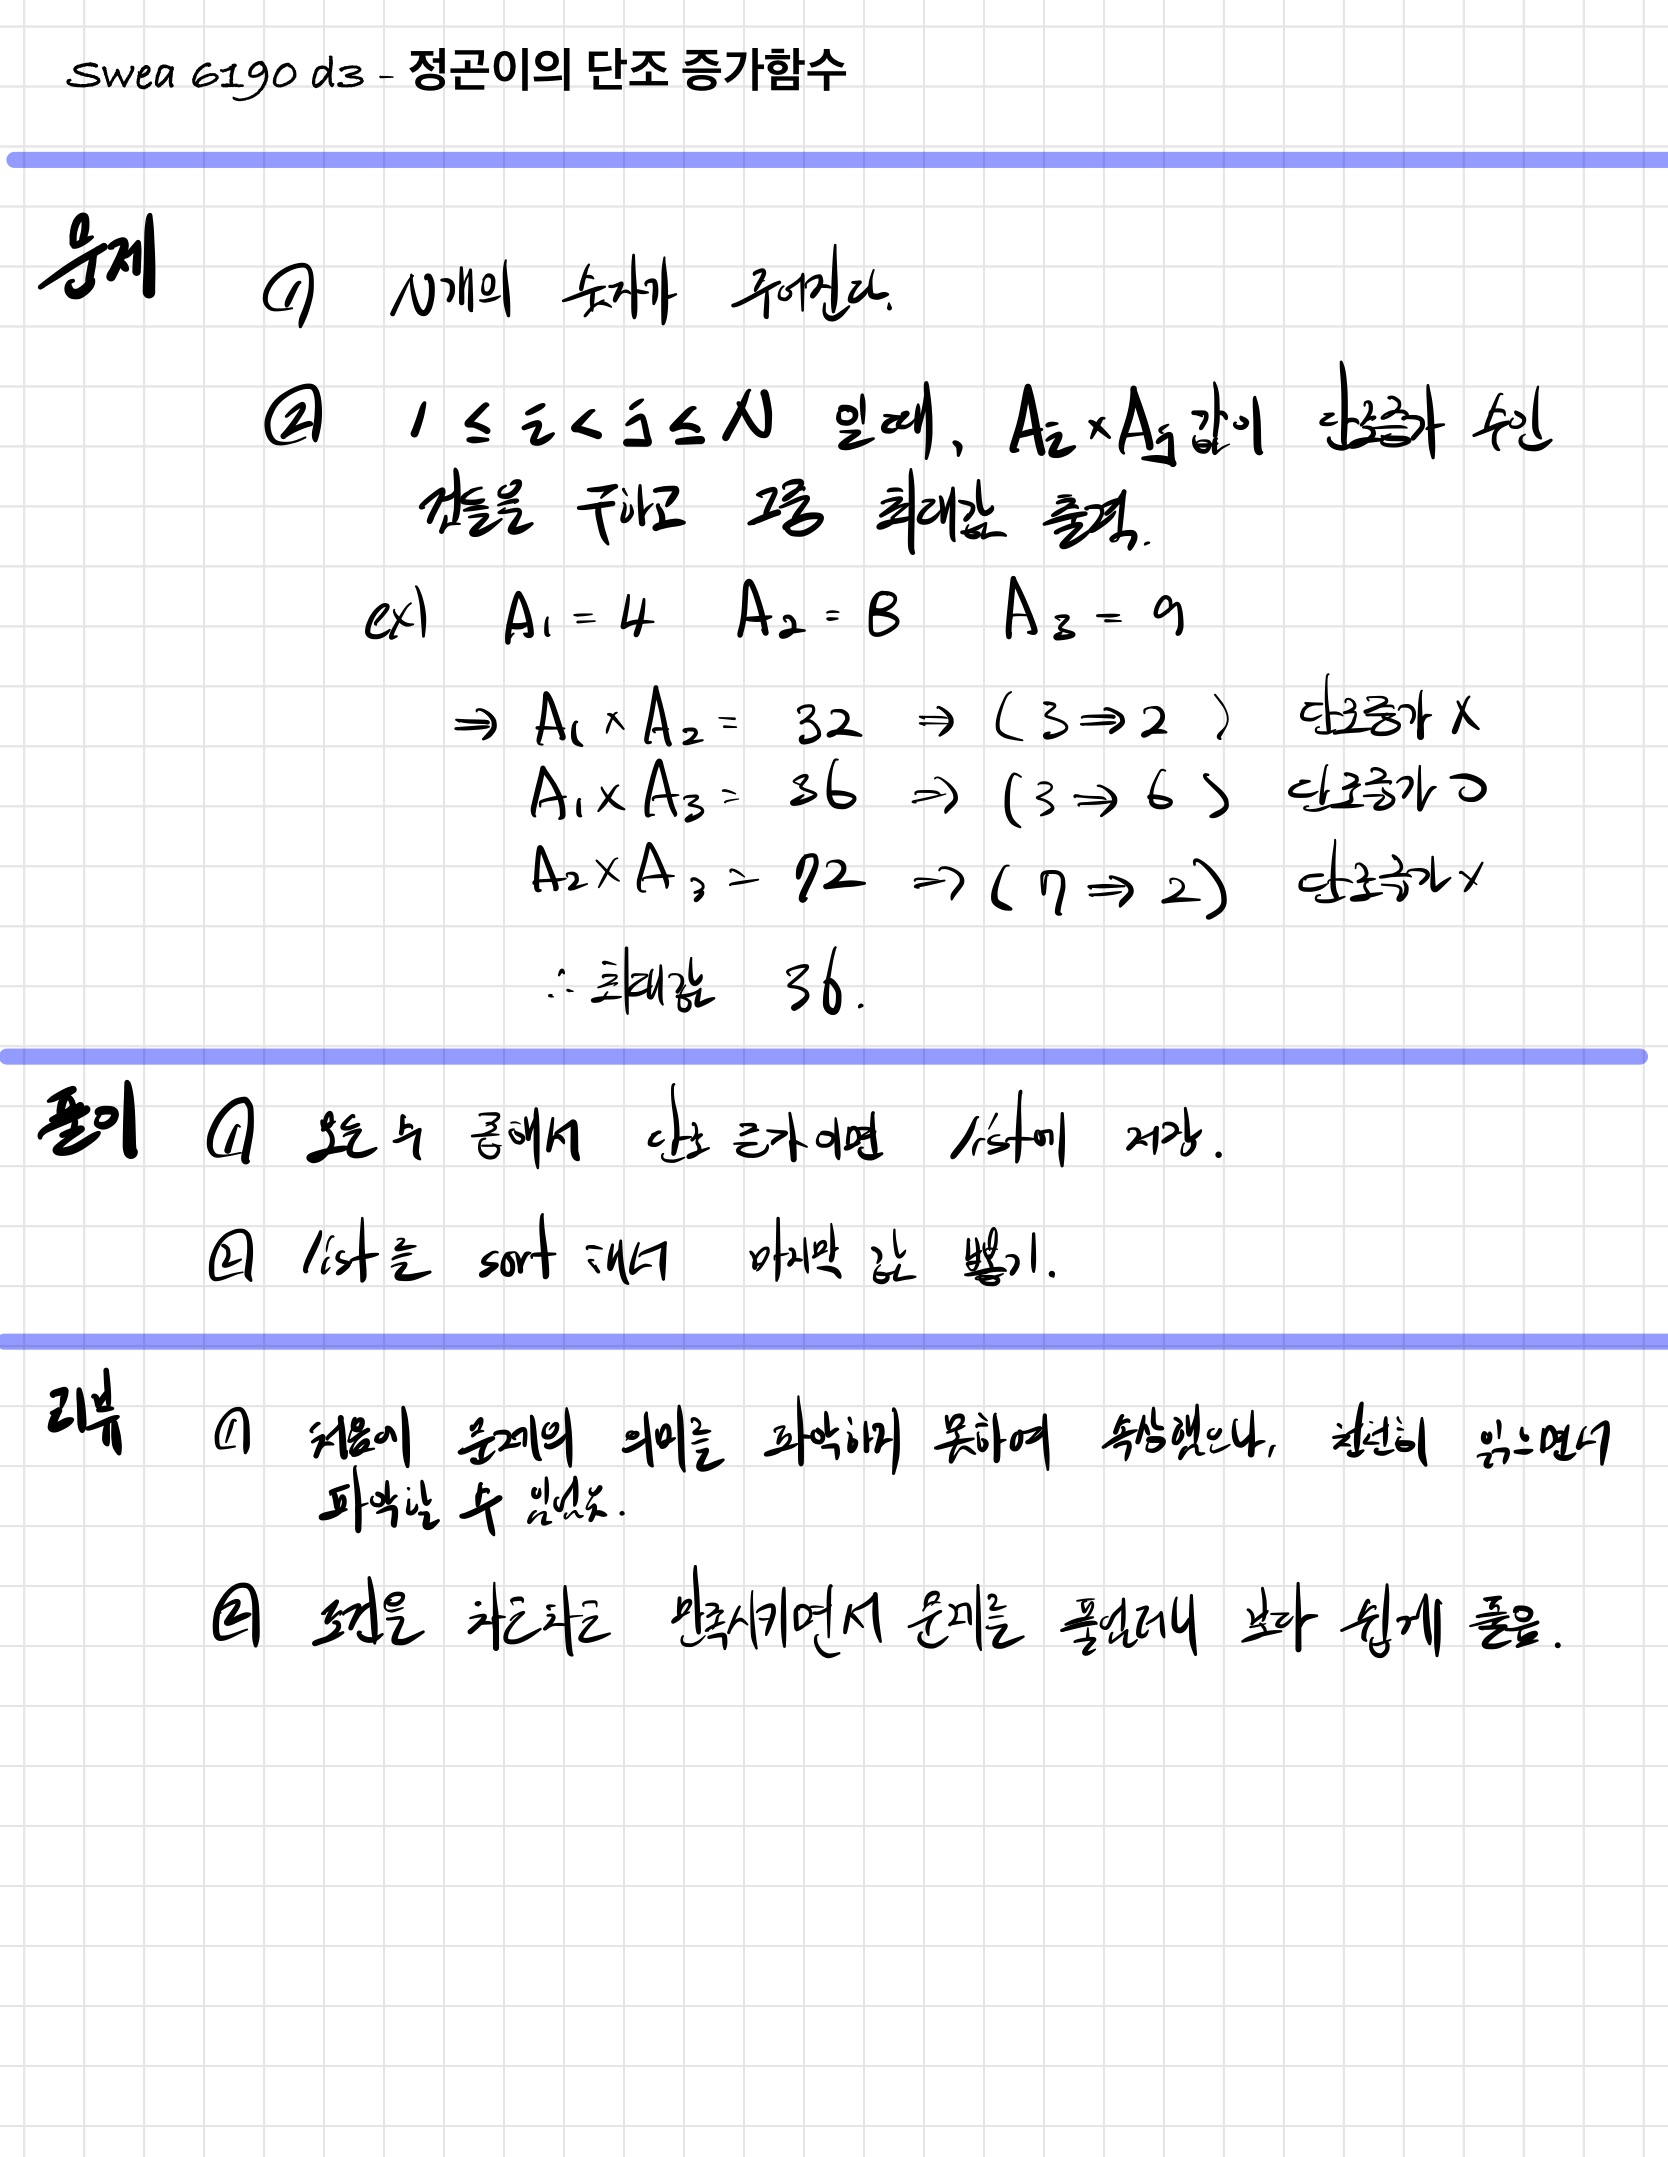 Swea 6190 d3 - 정곤이의 단조 증가함수
문제
① N개의 숫자가 주어진다.
② 1 ≤ i < j ≤ N 일때, Ai × Aj 값이 단조증가 수인
것들을 구하고 그중 최대값 출력.
ex) A1 = 4 A2 = 8 A3 = 9
⇒ A1 × A2 = 32 ⇒ (3 ⇒ 2) 단조증가 X
A1 × A3 = 36 ⇒ (3 ⇒ 6) 단조증가 O
A2 × A3 = 72 ⇒ (7 ⇒ 2) 단조증가 X
∴ 최대값 36.
풀이 ① 모든 수 곱해서 단조 증가이면 list에 저장.
② list를 sort 해서 마지막 값 뽑기.
리뷰 ① 처음에 문제의 의미를 파악하지 못하여 속상했으나, 천천히 읽으면서
파악할 수 있었.
② 조건을 차근차근 만족시키면서 문제를 풀었더니 보다 쉽게 풀음.